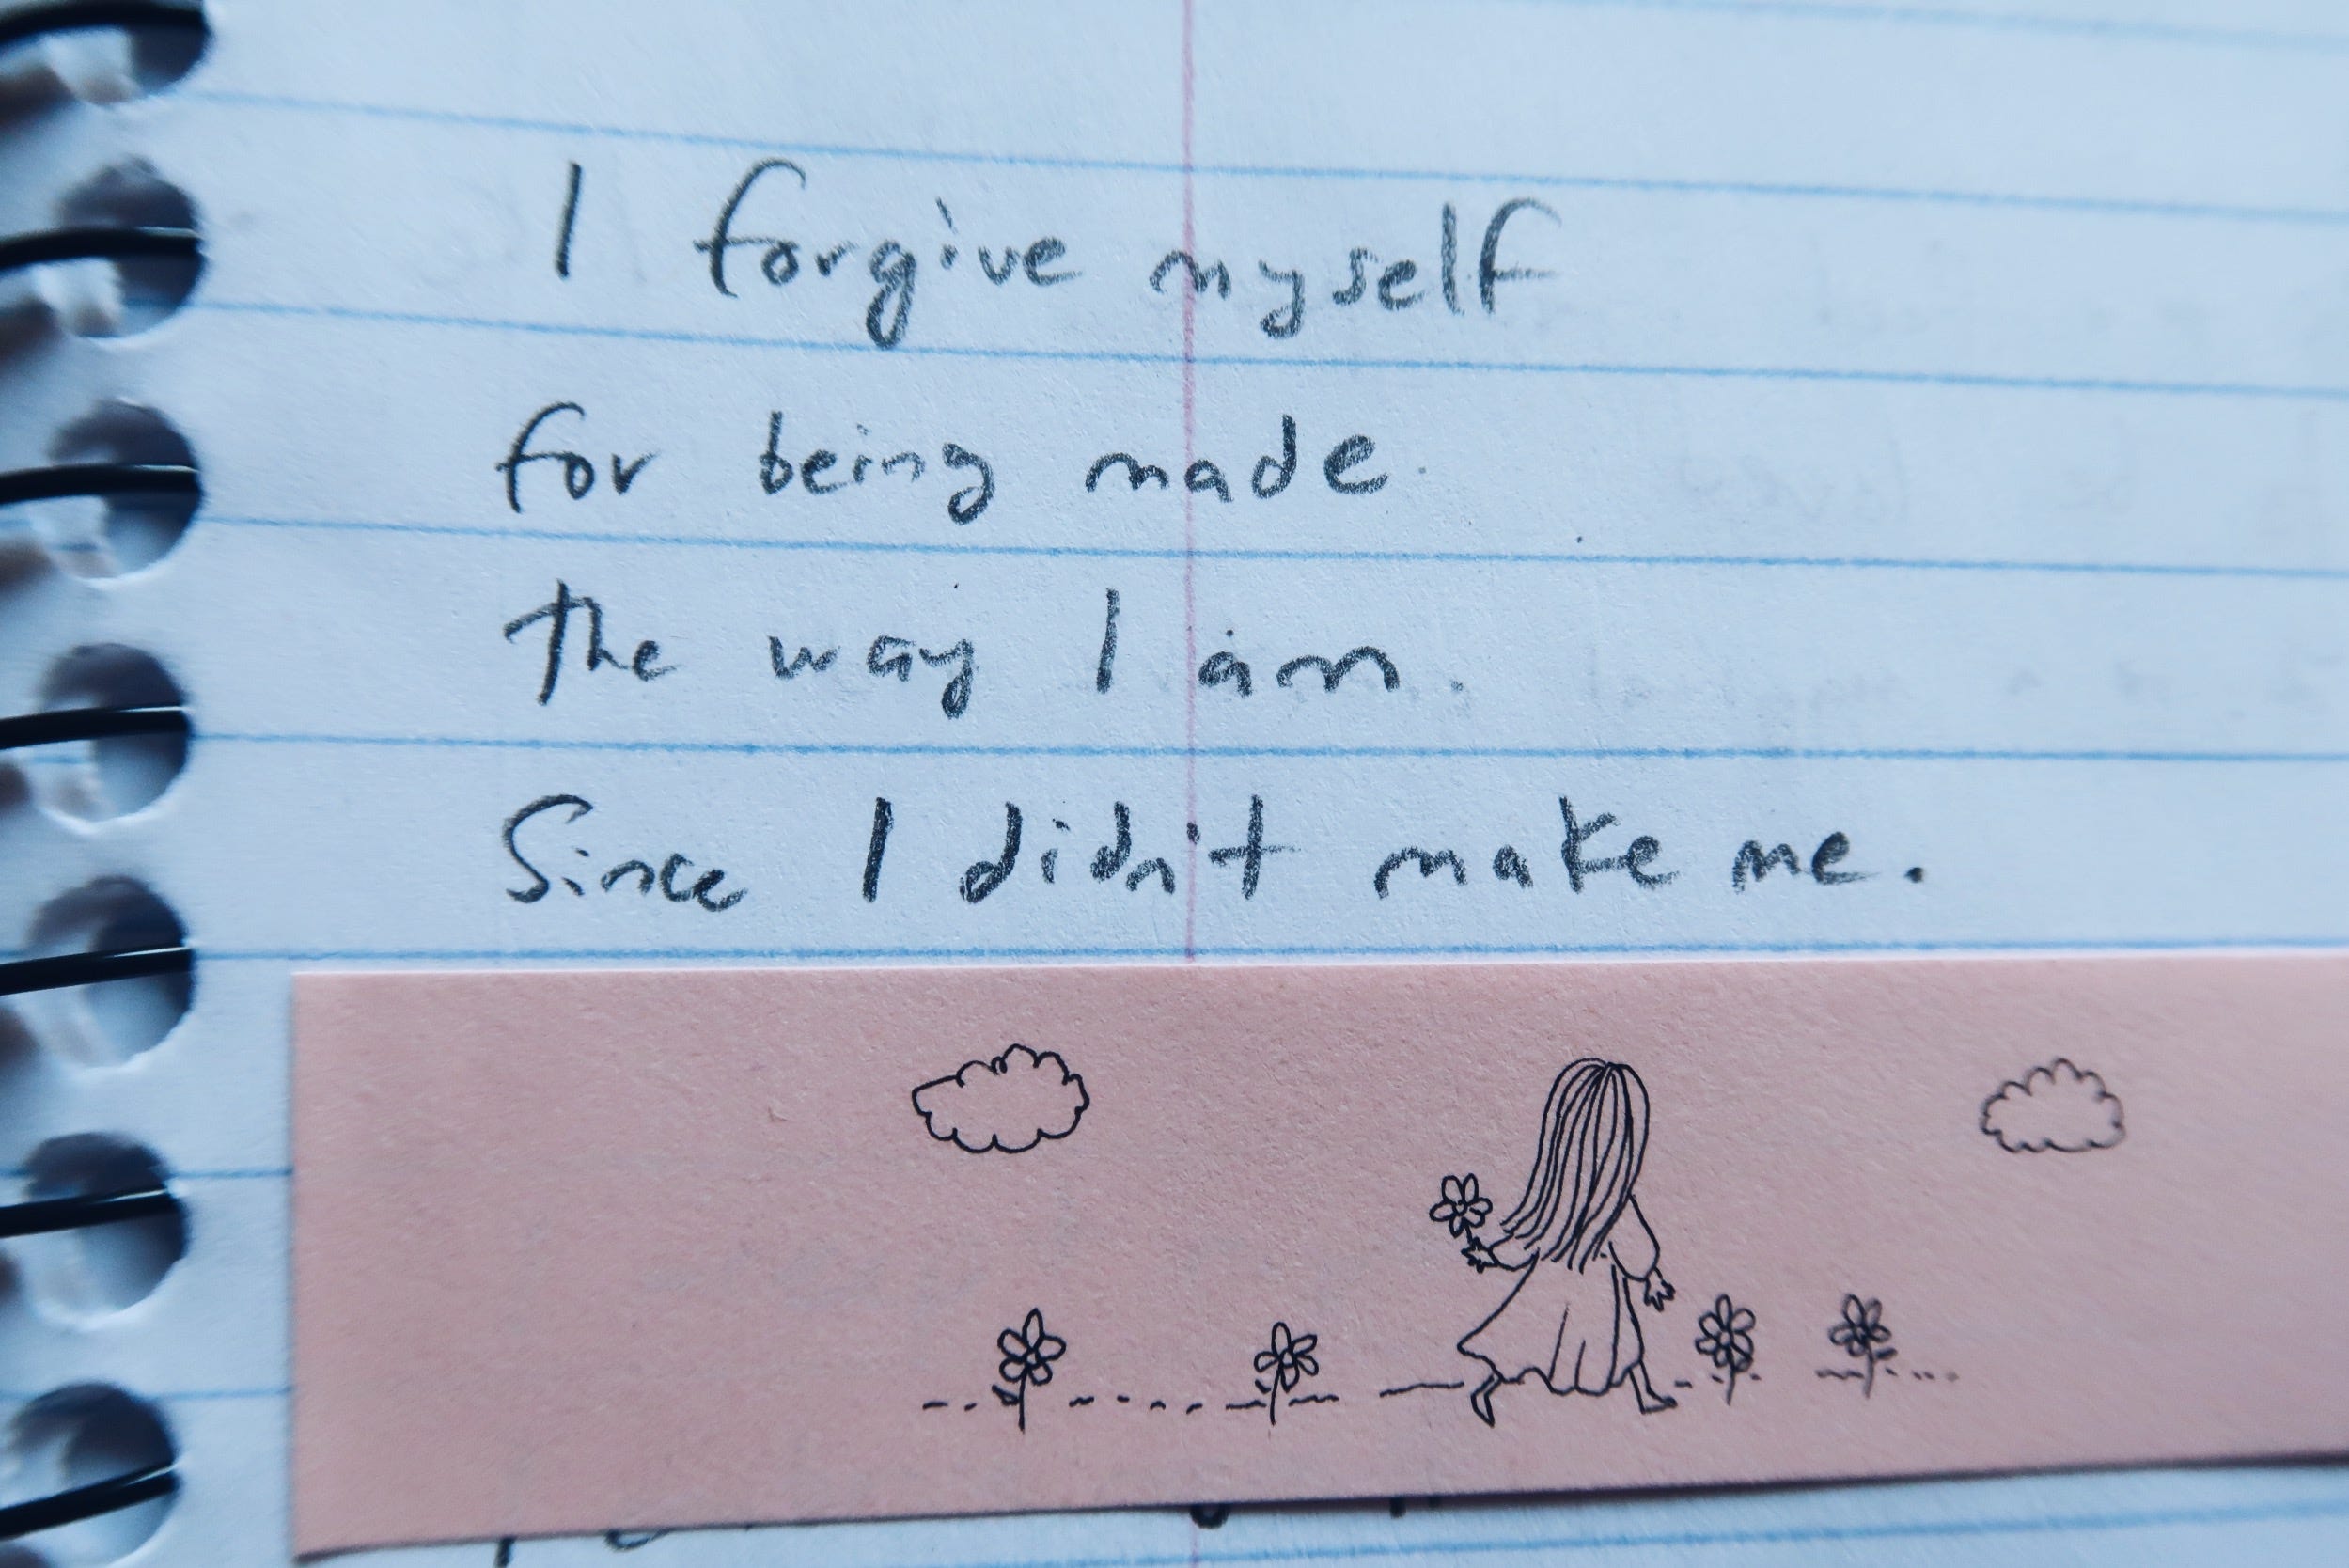 I forgive myself
for being made.
the way I am.
Since I didn't make me.